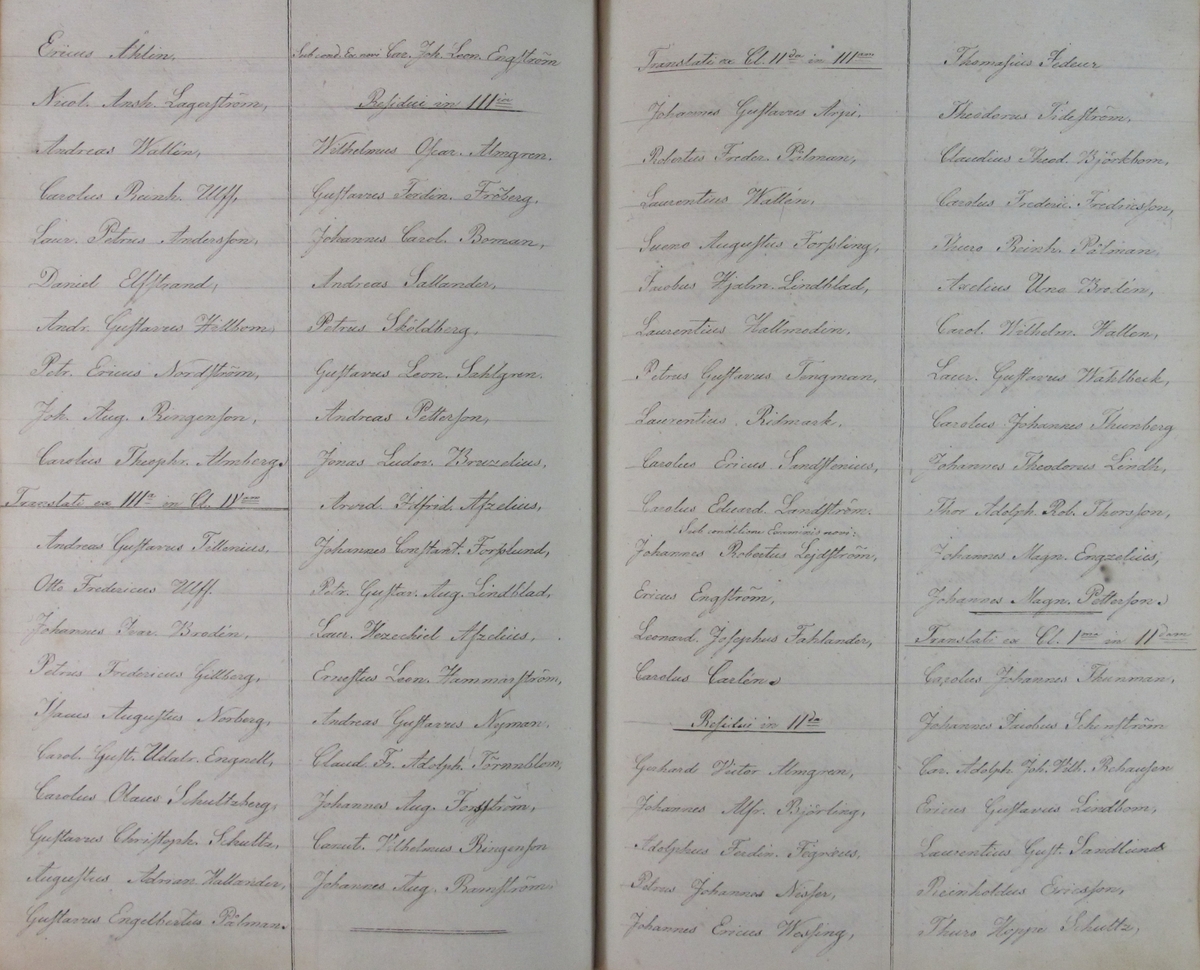 Ericus Ahlin,
Nicol. Ansh. Lagerström,
Andreas Wallin,
Carolus Reinh. Ulff,
Laur. Petrus Andersson,
Daniel Elfstrand,
Andr. Gustavus Hillbom,
Petr. Ericus Nordström,
Joh. Aug. Ringenson,
Carolus Theophr. Almberg.
Translati ex IIIa in Cl. IVam
Andreas Gustavus Tellenius,
Otto Fredericus Ulff.
Johannes Ivar. Brodin,
Petrus Fredericus Gillberg,
Isacus Augustus Norberg,
Carol. Gust. Udalr. Engnell,
Carolus Olaus Schultzberg,
Gustavus Christoph. Schultz,
Augustus Adrian Hallander,
Gustavus Engelbertus Pälman.
Sub cond. Ex. novi Joh. Leon. Engström
Residui in IIIia
Wilhelmus Oscar. Almgren.
Gustavus Ferdin. Fröberg.
Johannes Carol. Boman,
Andreas Sallander,
Petrus Sköldberg,
Gustavus Leon. Sahlgren.
Andreas Petterson,
Jonas Ludov. Bruzelius,
Arvid. Isfrid. Afzelius,
Johannes Constant. Forsslund,
Petr. Gustav. Aug. Lindblad,
Laur. Hezechiel Afzelius,
Ernestus Leon. Hammarström,
Andreas Gustavus Nyman.
Claud. Fr. Adolph. Törnnblom,
Johannes Aug. Forsström,
Canut. Vilhelmus Ringenson
Johannes Aug. Ramström.
Translati ex Cl. IIda in IIIam
Johannes Gustavus Arpi.
Robertus Freder. Pälman,
Laurentius Wallén,
Sueno Augustus Forssling,
Jacobus Hjalm. Lindblad,
Laurentius Hallmodin.
Petrus Gustavus Tingman,
Laurentius Ridmark.
Carolus Ericus Sandstenius,
Carolus Eduard. Landström.
Sub conditione Examinis novi:
Johannes Robertus Lejdström,
Ericus Engström,
Leonard. Josephus Fahlander,
Carolus Carlén.
Residui in IIda
Gerhard Victor Almgren,
Johannes Alfr. Björling,
Adolphus Ferdin. Fegræus,
Petrus Johannes Nisser,
Johannes Ericus Wessing,
Thomasius Fedeur
Theodorus Tideström,
Claudius Theod. Björkbom,
Carolus Frederic. Fredricsson,
Thuro Reinh. Pälman
Axelius Uno Brodén,
Carol. Wilhelm. Wallen,
Laur. Gustavus Wahlbeck,
Carolus Johannes Thunberg
Johannes Theodorus Lindh,
Thor Adolph. Rob. Thorsson,
Johannes Magn. Engzelius,
Johannes Magn. Petterson.
Translati ex Cl. Ima in IIdam
Carolus Johannes Thunman,
Johannes Jacobus Schenström
Car. Adolph Joh. Vilh. Rehausen
Ericus Gustavus Lindbom,
Laurentius Gust. Sandlund
Reinholdus Ericsson,
Thuro Hoppe Schultz,